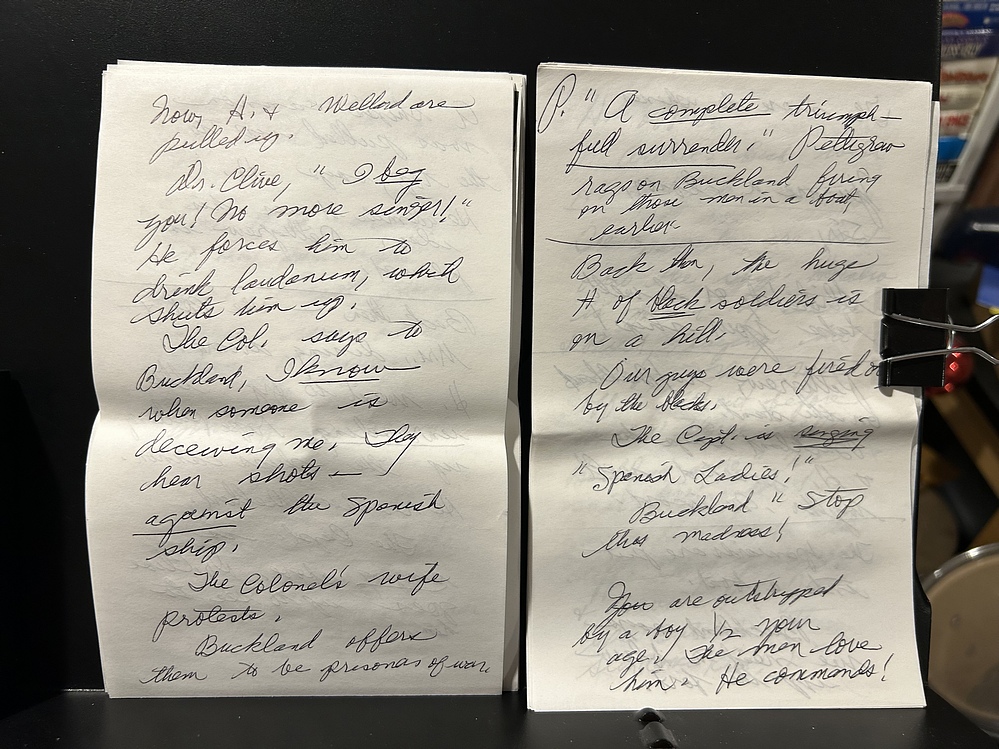 Now, H. & Wellard are
pulled up.
Dr. Clive, "I beg
you! No more singer!"
He forces him to
drink laudanum, which
shuts him up.
The Col. says to
Buckland, I know
when someone is
deceiving me. They
hear shots —
against the Spanish
ship.
The Colonel's wife
protests.
Buckland offers
them to be prisoners of war.
P. "A complete triumph —
full surrender." Pettigrew
rags on Buckland firing
on those men in a boat,
earlier.
Back then, the huge
# of black soldiers is
on a hill.
Our guys were fired on
by the blacks.
The Capt. is singing
"Spanish Ladies!"
Buckland "Stop
this madness!
You are outstripped
by a boy 1/2 your
age. The men love
him. He commands!